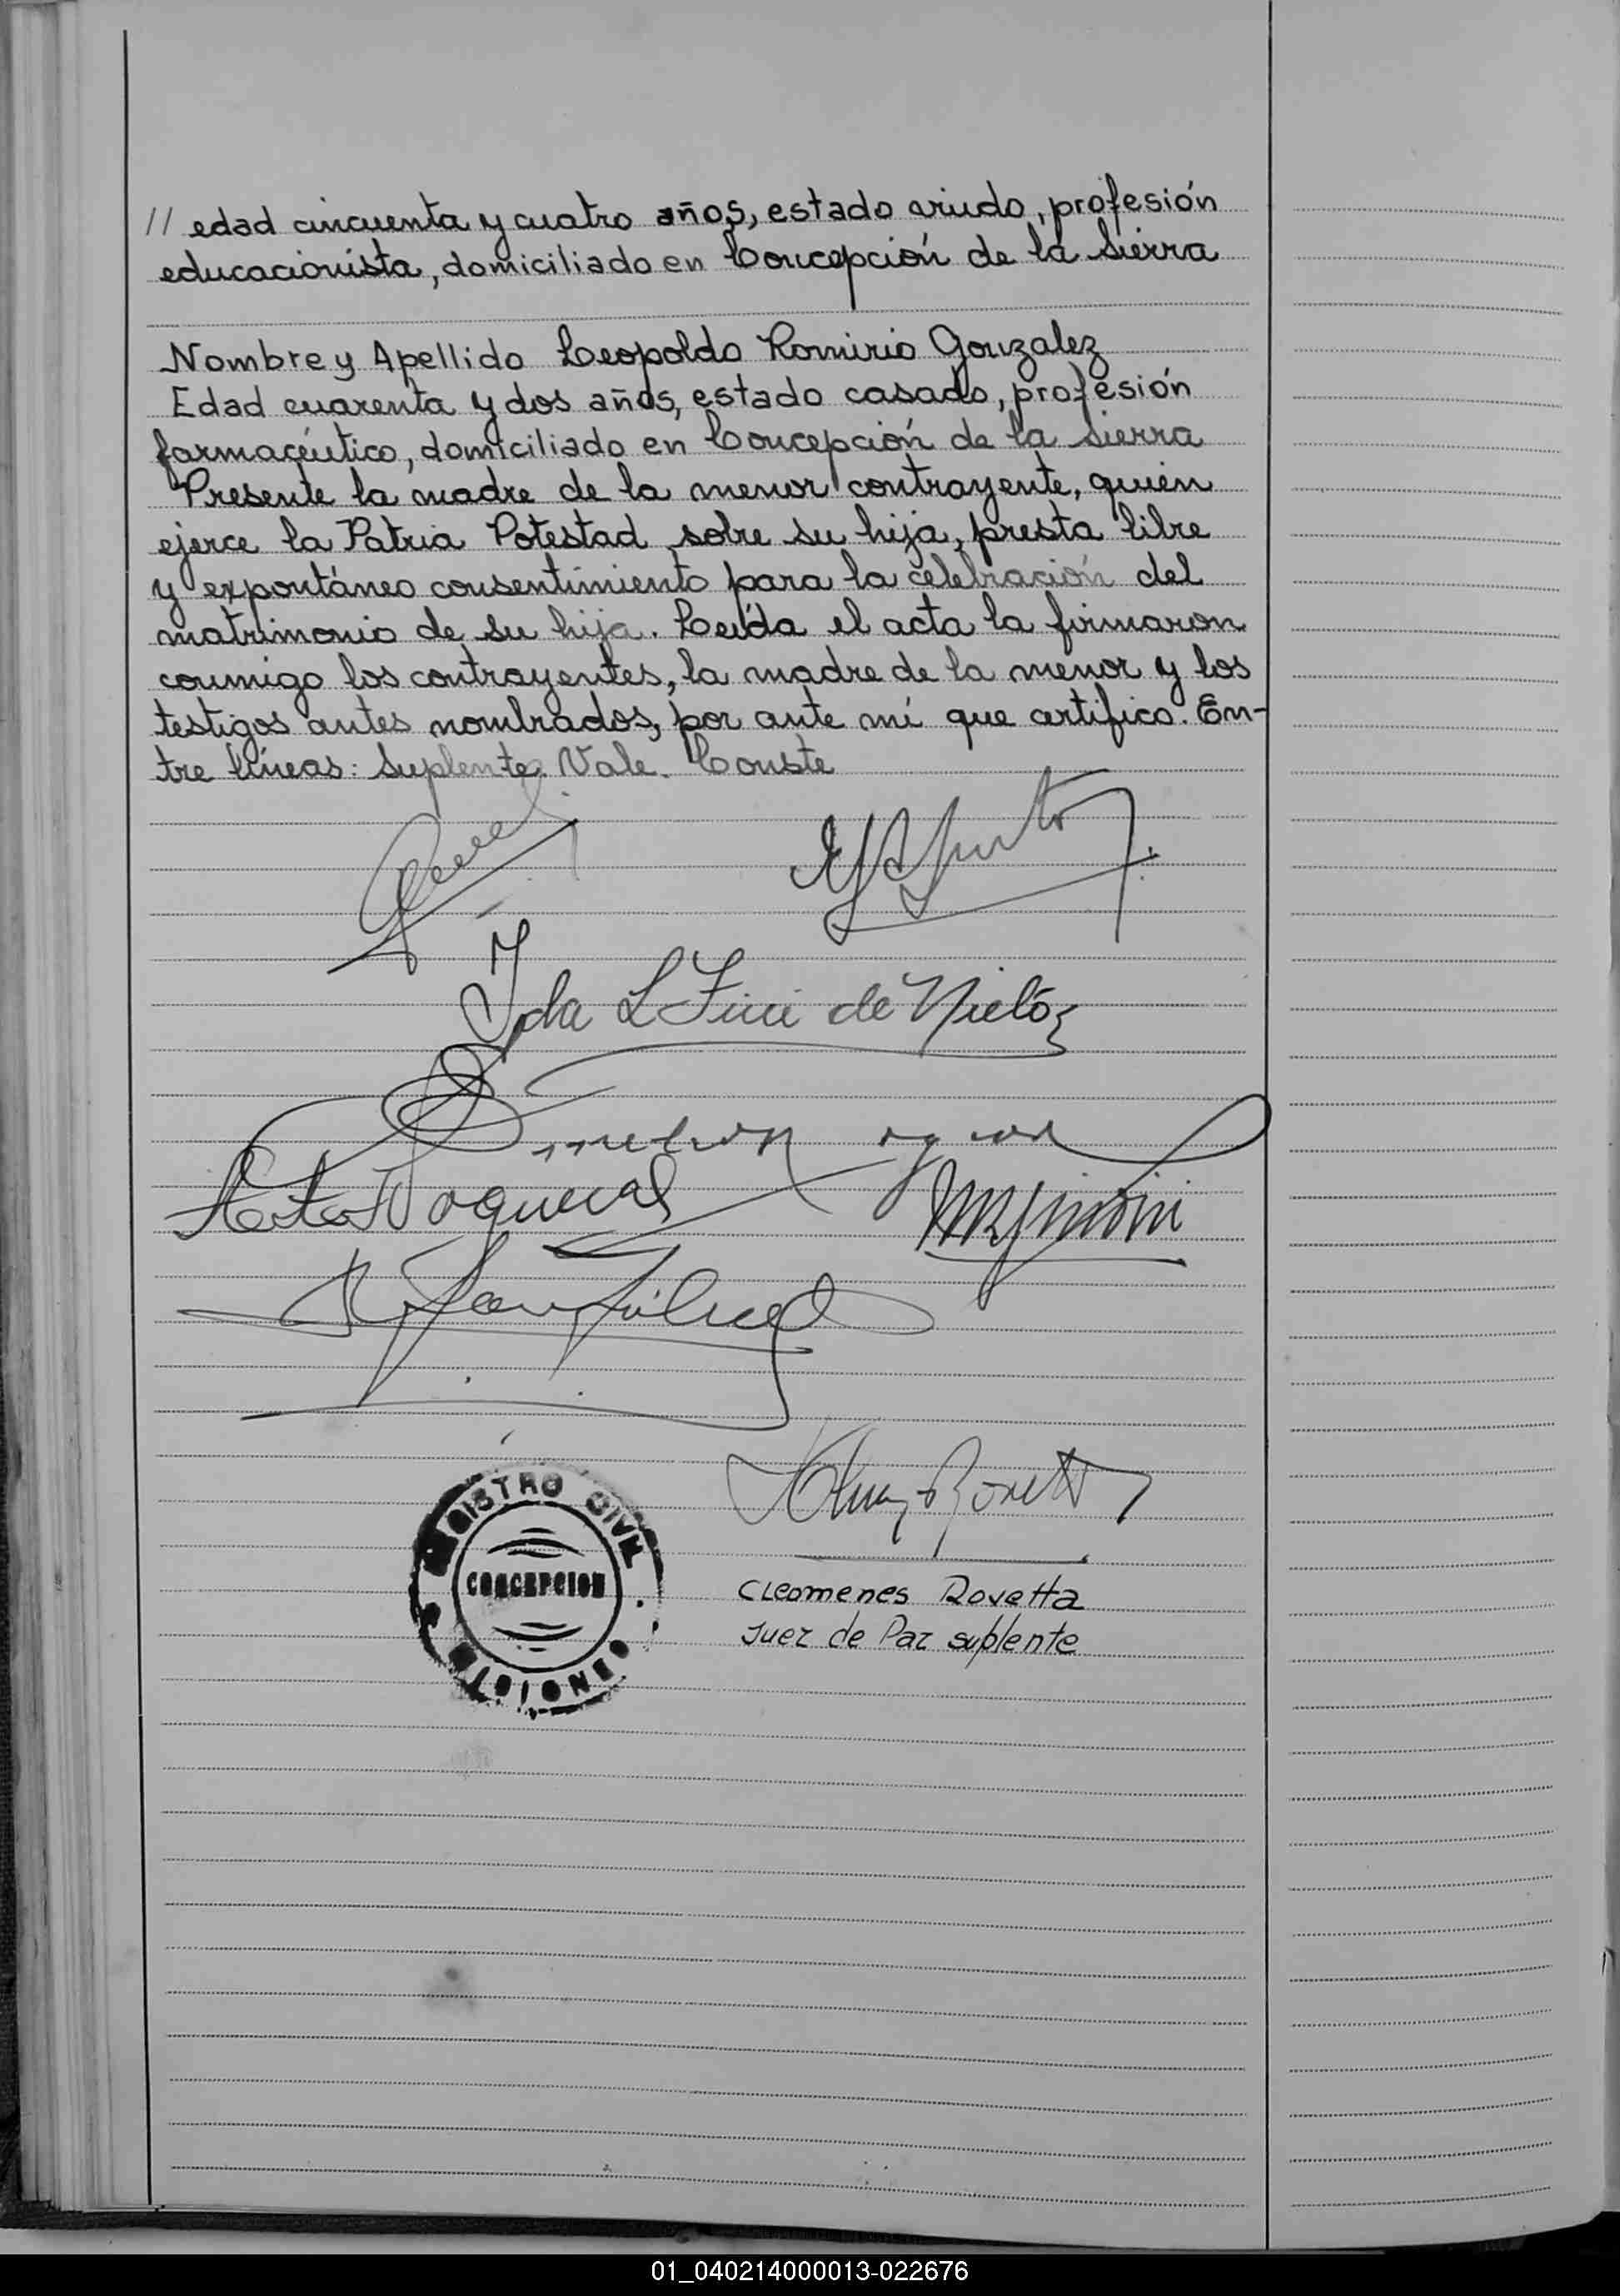 // edad cincuenta y cuatro años, estado viudo, profesión
educacionista, domiciliado en Concepción de la Sierra
Nombre y Apellido Leopoldo Romirio Gonzalez
Edad cuarenta y dos años, estado casado, profesión
farmacéutico, domiciliado en Concepción de la Sierra
Presente la madre de la menor contrayente, quién
ejerce la Patria Potestad sobre su hija, presta libre
y expontáneo consentimiento para la celebración del
matrimonio de su hija. Leída el acta la firmaron
conmigo los contrayentes, la madre de la menor y los
testigos antes nombrados, por ante mí que certifico. En-
tre líneas: Suplente. Vale. Conste
Ida L Fini de Nieto
REGISTRO CIVIL
CONCEPCION
MISIONES
Cleomenes Rovetta
Juez de Paz suplente
01_040214000013-022676